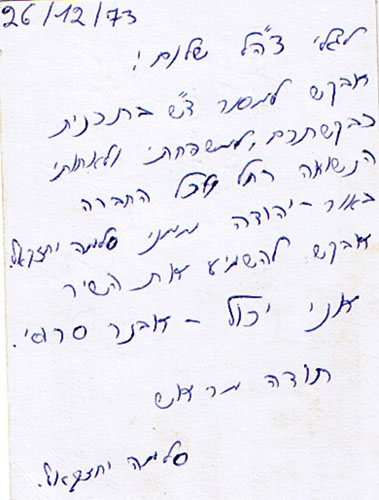 26/12/73
לגלי צה"ל שלום!
אבקש למסור ד"ש בתכנית
כבקשתכם, למשפחתי ולאחותי
הנשואה רחל וכל החברה
באור-יהודה ממני סלימה יחזקאל.
אבקש להשמיע את השיר
אני יכול - אבנר סרוסי.
תודה מראש
סלימה יחזקאל.